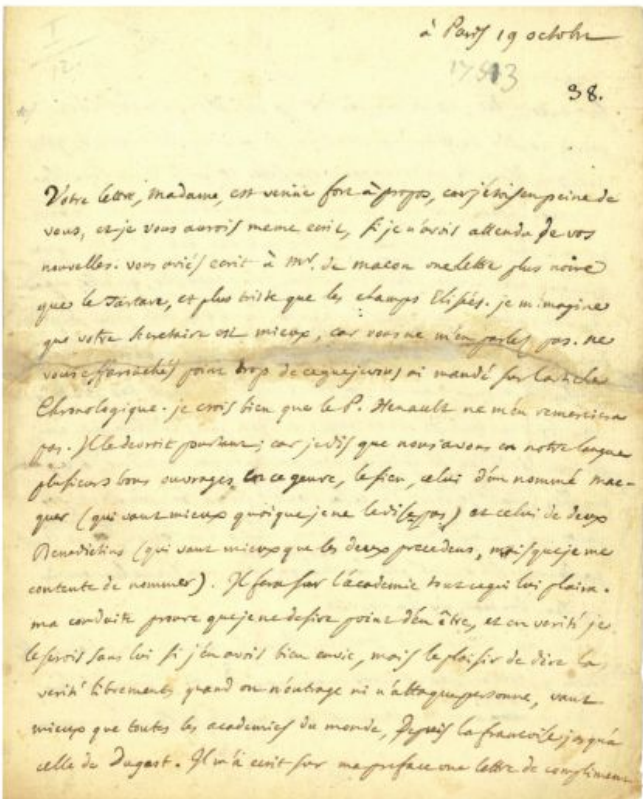 à Paris 19 octobre
1753
38.
Votre lettre, madame, est venüe fort à propos, car j'étois en peine de
vous, et je vous aurois meme ecrit, si je n'avois attendu de vos
nouvelles. vous aviés ecrit à mr. de macon une lettre plus noire
que le Tartare, et plus triste que les champs Elisées. je m'imagine
que votre secretaire est mieux, car vous ne m'en parlés pas. ne
vous effarouchés point trop de ce que je vous ai mandé sur l'article
Chronologique. je crois bien que le P. Henault ne m'en remerciera
pas. Il le devroit pourtant; car je dis que nous avons en notre langue
plusieurs bons ouvrages en ce genre, le sien, celui d'un nommé mac-
quer (qui vaut mieux quoique je ne le dise pas) et celui de deux
Benedictins (qui vaut mieux que les deux precedens, mais que je me
contente de nommer). Il fera sur l'académie tout ce qui lui plaira.
ma conduite prouve que je ne desire point d'en être, et en verité je
le serois sans lui si j'en avois bien envie, mais le plaisir de dire la
verité librement quand on n'outrage ni n'attaque personne, vaut
mieux que toutes les academies du monde, depuis la francoise jusqu'à
celle de Dugast. Il m'a ecrit sur ma preface une lettre de complimens